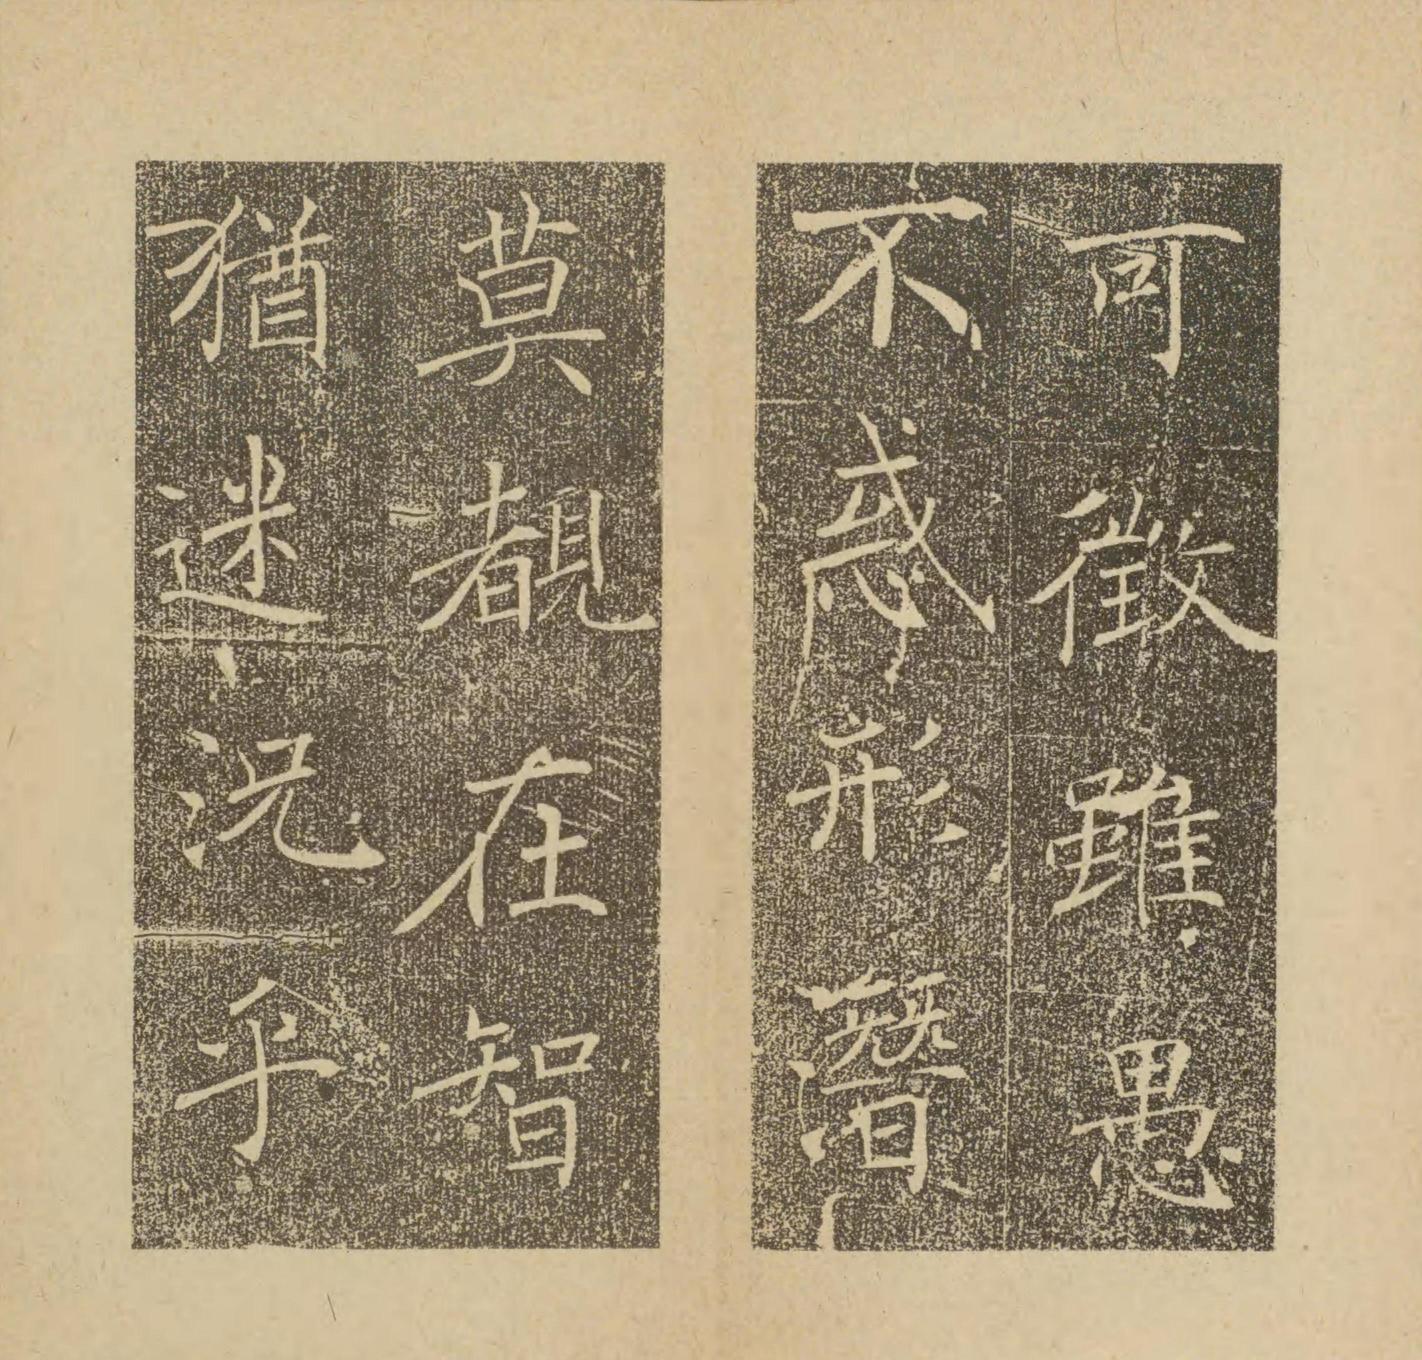 可徵雖愚
不惑形潛
莫覩在智
猶迷況乎